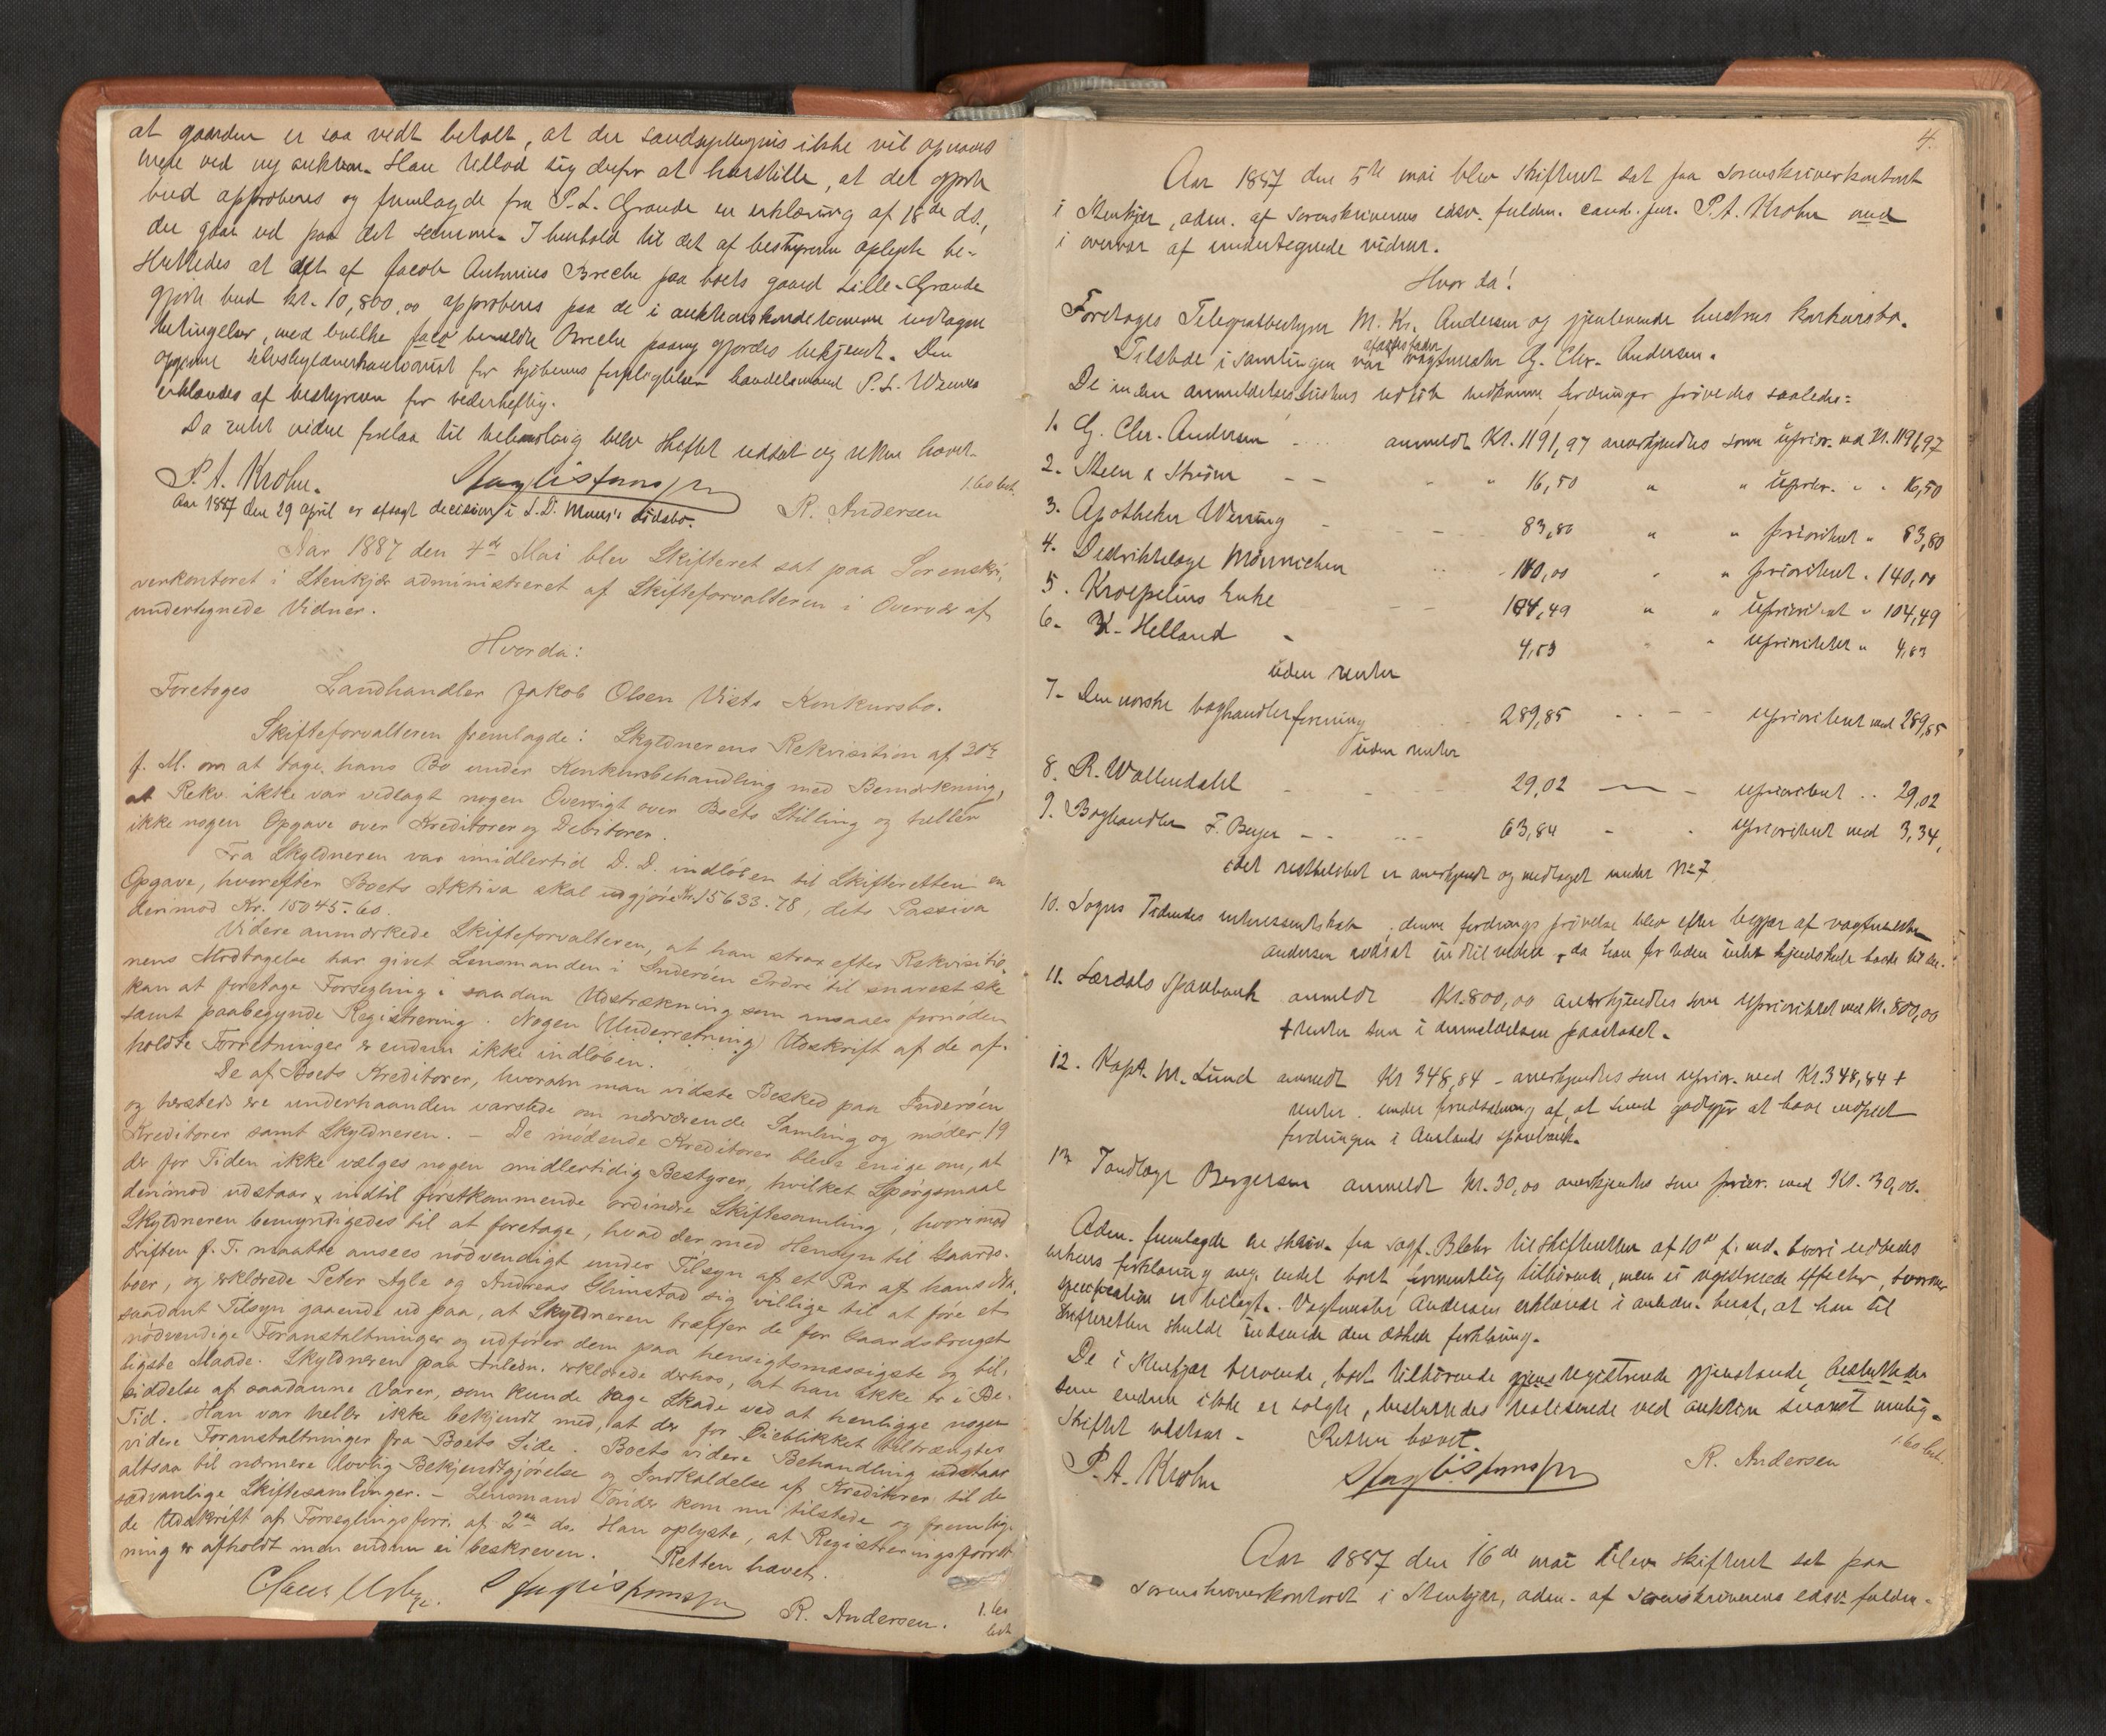 at gaarden er saa vedt betalt, at der sandsynligvis ikke vil opnaaes
mere ved ny auktion. Han tillod sig derfor at henstille, at det gjorte
bud approberes og fremlagde fra P. L. Grande en erklæring af 18de ds.,
der gaar ud paa det samme. I henhold til det af bestyreren oplyste be-
sluttedes at det af Jacob Antonius Breche paa boets gaard Lille-Grande
gjorte bud kr. 10,800,00 approberes paa de i auktionskonditionerne indtagne
betingelser, med hvilke bemeldte Breche paany gjordes bekjendt. Den
opgivne selvskyldnerkautionist for kjøberens forpligtelser handelsmand P. L.
erklæredes af bestyreren for vederheftig.
Da intet videre forelaa til behandling blev skiftet udsat og retten hævet.
P. A. Krohn. R. Andersen 1.60 bet.
Aar 1887 den 29 april er afsagt decision i dødsbo.
Aar 1887 den 4de Mai blev Skifteret sat paa Sorenskri-
verkontoret i Stenkjær administreret af Skifteforvalteren i Overvær af
undertegnede Vidner.
Hvorda:
Foretoges Landhandler Jakob Olsen Vists Konkursbo.
Skifteforvalteren fremlagde: Skyldnerens Rekvisition af 30te
f. M. om at tage hans Bo under Konkursbehandling med Bemærkning,
at Rekv. ikke var vedlagt nogen Oversigt over Boets Stilling og heller
ikke nogen Opgave over Kreditorer og Debitorer.
Fra Skyldneren var imidlertid D. D. indløben til Skifteretten en
Opgave, hvorefter Boets Aktiva skal udgjøre Kr. 15633.78, dets Passiva
derimod Kr. 15045.60.
Videre anmærkede Skifteforvalteren, at han strax efter Rekvisitio-
nens Modtagelse har givet Lensmanden i Inderøen Ordre til snarest ske
kan at foretage Forsegling i saadan Udstrækning som ansaaes fornøden
samt paabegynde Registrering. Nogen (Underretning) Udskrift af de af-
holdte Forretninger er endnu ikke indløben.
De af Boets Kreditorer, hvorom man vidste Besked paa Inderøen
og hersteds ere underhaanden varslede om nærværende Samling og møder 19
Kreditorer samt Skyldneren. – De mødende Kreditorer bleve enige om, at
der for Tiden ikke vælges nogen midlertidig Bestyrer, hvilket Spørgsmaal
derimod udstaar indtil førstkommende ordinære Skiftesamling, hvorimod
Skyldneren bemyndigedes til at foretage, hvad der med Hensyn til Gaards-
driften f. T. maatte ansees nødvendigt under Tilsyn af et Par af hans Na-
boer, og erklærede Peter Agle og Andreas Glimstad sig villige til at føre et
saadant Tilsyn gaaende ud paa, at Skyldneren træffer de for Gaardsbruget
nødvendige Foranstaltninger og udfører dem paa hensigtsmæssigste og bil-
ligste Maade. Skyldneren paa Anledn. erklærede derhos, at han ikke er i Be-
siddelse af saadanne Varer, som kunde tage Skade ved at henligge nogen
Tid. Han var heller ikke bekjendt med, at der for Øieblikket tiltrængtes
videre Foranstaltninger fra Boets Side. Boets videre Behandling udstaar
altsaa til nærmere lovlig Bekjendtgjørelse og Indkaldelse af Kreditorer til de
sædvanlige Skiftesamlinger. – Lensmand kom nu tilstede og fremlag-
de Udskrift af Forseglingsforr. af 2den ds. Han oplyste, at Registreringsforret-
ning er afholdt men endnu ei beskreven. Retten hævet.
R. Andersen. 1.60
bet.
4.
Aar 1887 den 5te mai blev skifteret sat paa sorenskriverkontoret
i Stenkjær, adm. af sorenskriverens edsv. fuldm. cand. jur. P. A. Krohn med
i overvær af undertegnede vidner.
Hvor da!
Foretoges Telegrafbestyrer M. Kr. Andersen og gjenlevende hustrus konkursbo.
Tilstede i samlingen var vagtmester G. Chr. Andersen.
De inden anmeldelsesfristens udløb indkomne fordringer prøvedes saaledes:
1. G. Chr. Andersen anmeldt Kr. 1191,97 anerkjendtes som uprior. ved Kr. 1191,97
2. Steen & Strøm – – " " 16,50 " " uprior. " " 16,50
3. Apotheker Werring – – 83,80 " " prioritert " 83,80
4. Distriktslæge Münnichen 140,00 " " prioritert " 140,00
5. Kroepelins Enke – – 104,49 " " uprioritert " 104,49
6. K. Helland – 4,83 " " uprioriteret " 4,83
uden renter
7. Den norske boghandlerforening 289,85 uprioritert med 289,85
uden renter
8. R. Wallendahl 29,02 uprioritert 29,02
9. Boghandler F. Beyer – 63,84 uprioritert med 3,34,
idet restbeløbet er anerkjendt og medtaget under No 7
10. Sogns Tidendes interessentskab, denne fordrings prøvelse blev efter begjær af vagtmester
Andersen udsat indtil videre, da han for tiden intet kjendskab havde til den.
11. Lærdals sparebank anmeldt Kr. 800,00 anerkjendtes som uprioritert med Kr. 800,00
+ renter som i anmeldelsen paastaaet.
12. Kapt. M. Lund anmeldt Kr 348,84 – anerkjendtes som uprior. med Kr. 348,84 +
renter under forudsætning af, at Lund godtgjør at have indfriet
fordringen i Aurlands sparebank.
13 Tandlæge Bergersen anmeldt Kr. 30,00 anerkjendtes som prior. med Kr. 30,00.
Adm. fremlagde en skriv. fra sagf. Blehr til skifteretten af 10de f. md. hvori udbedes
enkens forklaring ang. endel boet formentlig tilhørende, men ei registrerede effecter, hvorover
specification er bilagt. Vagtmester Andersen erklærede i anledn. heraf, at han til
skifteretten skulde indsende den æskede forklaring.
De i Stenkjær beroende, boet tilhørende registrerede gjenstande, besluttedes
som endnu ikke er solgte, besluttedes realiserede ved auktion snarest mulig.
Skiftet udstaar – Retten hævet.
P. A. Krohn R. Andersen 1.60 bet.
Aar 1887 den 16de mai blev skifteret sat paa
sorenskriverkontoret i Stenkjær, adm. af sorenskriverens edsv. fuldm.